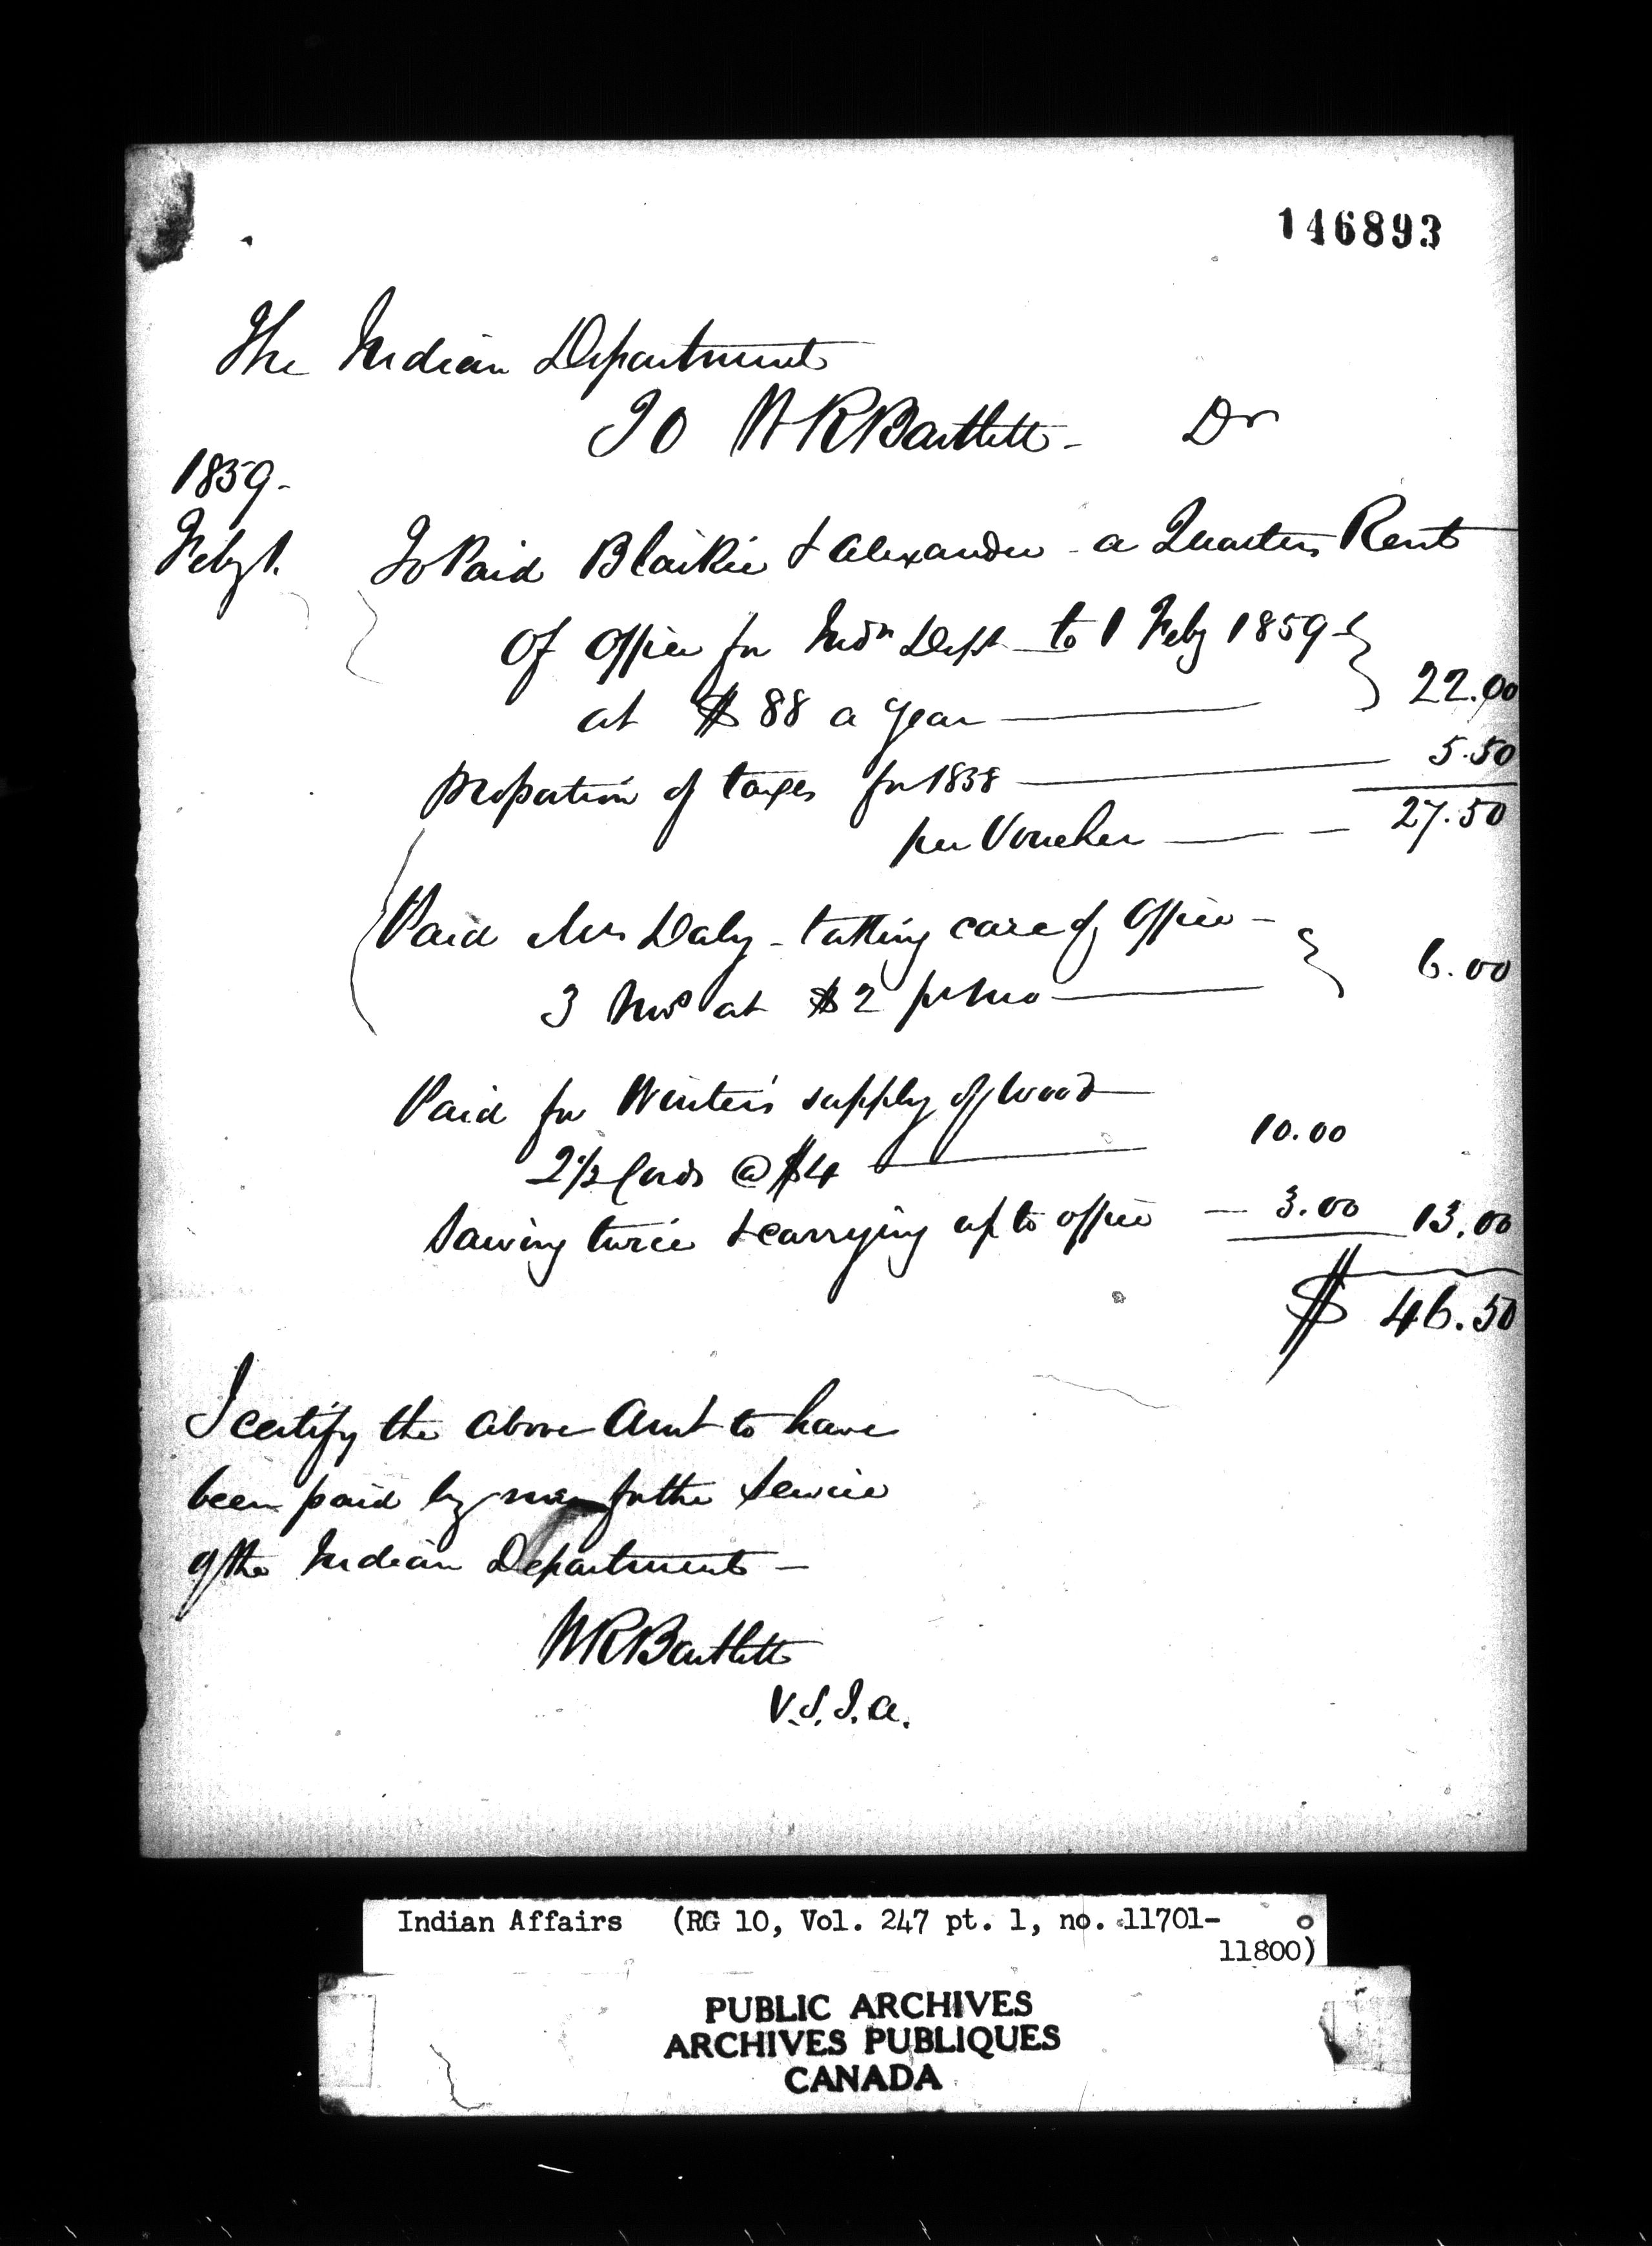 146893
The Indian Department
To W R Bartlett - Dr
1859 -
Feby 1. To Paid Blaikie & Alexander - a Quarters Rent
Of Office for Indn Dept to 1 Feby 1859 -
at $ 88 a year 22.00
proportion of taxes for 1858 5.50
per Voucher 27.50
Paid Mrs Daly - takking care of Office -
3 Mos at $2 pr Mo 6.00
Paid for Winter's supply of Wood
2 1/2 Cords @ $4 10.00
Sawing twice & carrying up to office - 3.00 13.00
$ 46.50
I certify the above Amt to have
been paid by me for the Service
of the Indian Department -
W R Bartlett
V.S.I.A.
Indian Affairs (RG 10, Vol. 247 pt. 1, no. 11701-
11800)
PUBLIC ARCHIVES
ARCHIVES PUBLIQUES
CANADA